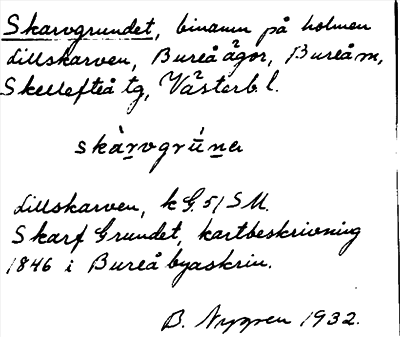 Skarvgrundet, binamn på holmen
Lillskarven, Bureå ägor, Bureå sn,
Skellefteå tg, Västerb. l.
skàrvgrúna
Lillskarven, k G. 51 SM.
Skarf Grundet, kartbeskrivning
1846 i Bureå byaskrin.
B. Nygren 1932.